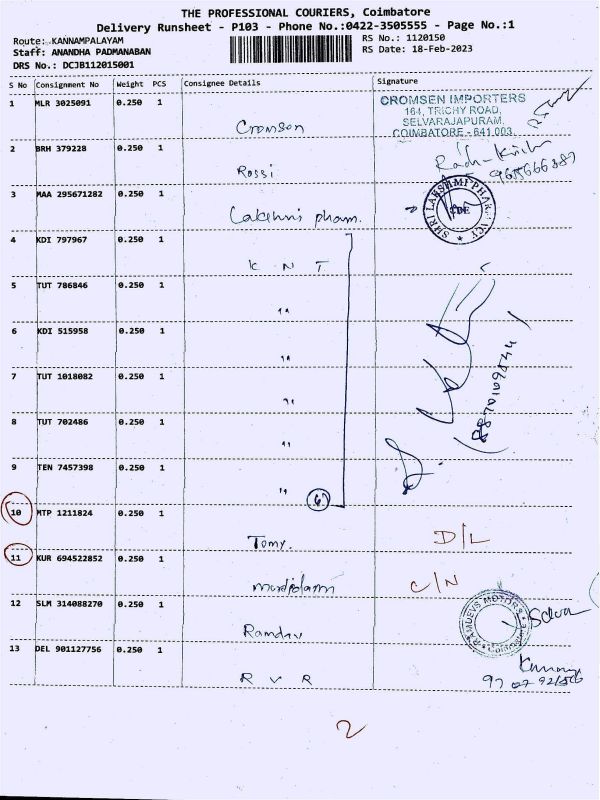 THE PROFESSIONAL COURIERS, Coimbatore
Delivery Runsheet - P103 - Phone No.:0422-3505555 - Page No.:1
Route: KANNAMPALAYAM
RS No.: 1120150
Staff: ANANDHA PADMANABAN
RS Date: 18-Feb-2023
DRS No.: DCJB112015001
S No Consignment No Weight PCS Consignee Details Signature
1 MLR 3025091 0.250 1 Cromson
CROMSEN IMPORTERS
164, TRICHY ROAD,
SELVARAJAPURAM,
COIMBATORE - 641 003.
2 BRH 379228 0.250 1 Rossi
3 MAA 295671282 0.250 1 Lakshmi pharm.
SHRI LAKSHMI PHARMACY
CBE
4 KDI 797967 0.250 1 K N T
5 TUT 786846 0.250 1 "
6 KDI 515958 0.250 1 "
7 TUT 1018082 0.250 1 "
8 TUT 702486 0.250 1 "
9 TEN 7457398 0.250 1 " 6
10 MTP 1211824 0.250 1 Tomy. D/L
11 KUR 694522852 0.250 1 C/N
12 SLM 314088270 0.250 1 Ramdev
RAMDEVS MOTORS
Selva
13 DEL 901127756 0.250 1 R V R
2